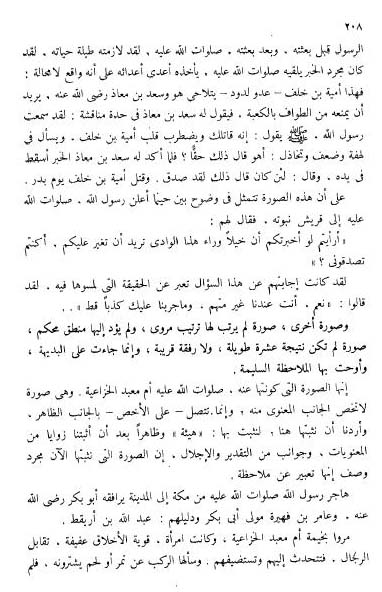 ٢٠٨
الرسول قبل بعثته . وبعد بعثته . صلوات الله عليه . لقد لازمته طيلة حياته . لقد
كان مجرد الخبر يلقيه صلوات الله عليه . يأخذه أعدى أعدائه على أنه واقع لا محالة :
فهذا أمية بن خلف – عدو لدود – يتلاحى هو وسعد بن معاذ رضى الله عنه . يريد
أن يمنعه من الطواف بالكعبة . فيقول له سعد بن معاذ فى حدة مناقشة : لقد سمعت
رسول الله . ﷺ يقول : إنه قاتلك ويضطرب قلب أمية بن خلف . ويسأل فى
لهفة وضعف وتخاذل : أهو قال ذلك حقًّا ؟ فلما أكد له سعد بن معاذ الخبر أسقط
فى يده . وقال : لئن كان قال ذلك لقد صدق . وقتل أمية بن خلف يوم بدر .
على أن هذه الصورة تتمثل فى وضوح بين حينما أعلن رسول الله . صلوات الله
عليه إلى قريش نبوته . فقال لهم :
« أرأيتم لو أخبرتكم أن خيلاً وراء هذا الوادى تريد أن تغير عليكم . أكنتم
تصدقونى ؟ »
لقد كانت إجابتهم عن هذا السؤال تعبر عن الحقيقة التى لمسوها فيه . لقد
قالوا : « نعم . أنت عندنا غير متهم . وماجربنا عليك كذباً قط » . .
وصورة أخرى ، صورة لم يرتب لها ترتيب مروى ، ولم يؤد إليها منطق محكم ،
صورة لم تكن نتيجة عشرة طويلة ، ولا رفقة قريبة ، وإنما جاءت على البديهة ،
وأوحت بها الملاحظة السليمة .
إنها الصورة التى كونتها عنه . صلوات الله عليه أم معبد الخزاعية . وهى صورة
لاتخص الجانب المعنوى منه ، وإنما تتصل – على الأخص – بالجانب الظاهر .
وأردنا أن نثبتها هنا . لنثبت بها : « هيئة » وظاهراً بعد أن أثبتنا زوايا من
المعنويات . وجوانب من التقدير والإجلال . إن الصورة التى نثبتها الآن مجرد
وصف إنها تعبير عن ملاحظة .
هاجر رسول الله صلوات الله عليه من مكة إلى المدينة يرافقه أبو بكر رضى الله
عنه . وعامر بن فهيرة مولى أبى بكر ودليلهم : عبد الله بن أريقط .
مروا بخيمة أم معبد الخزاعية . وكانت امرأة . قوية الأخلاق عفيفة . تقابل
الرجال . فتتحدث إليهم وتستضيفهم . وسألها الركب عن تمر أو لحم يشترونه . فلم